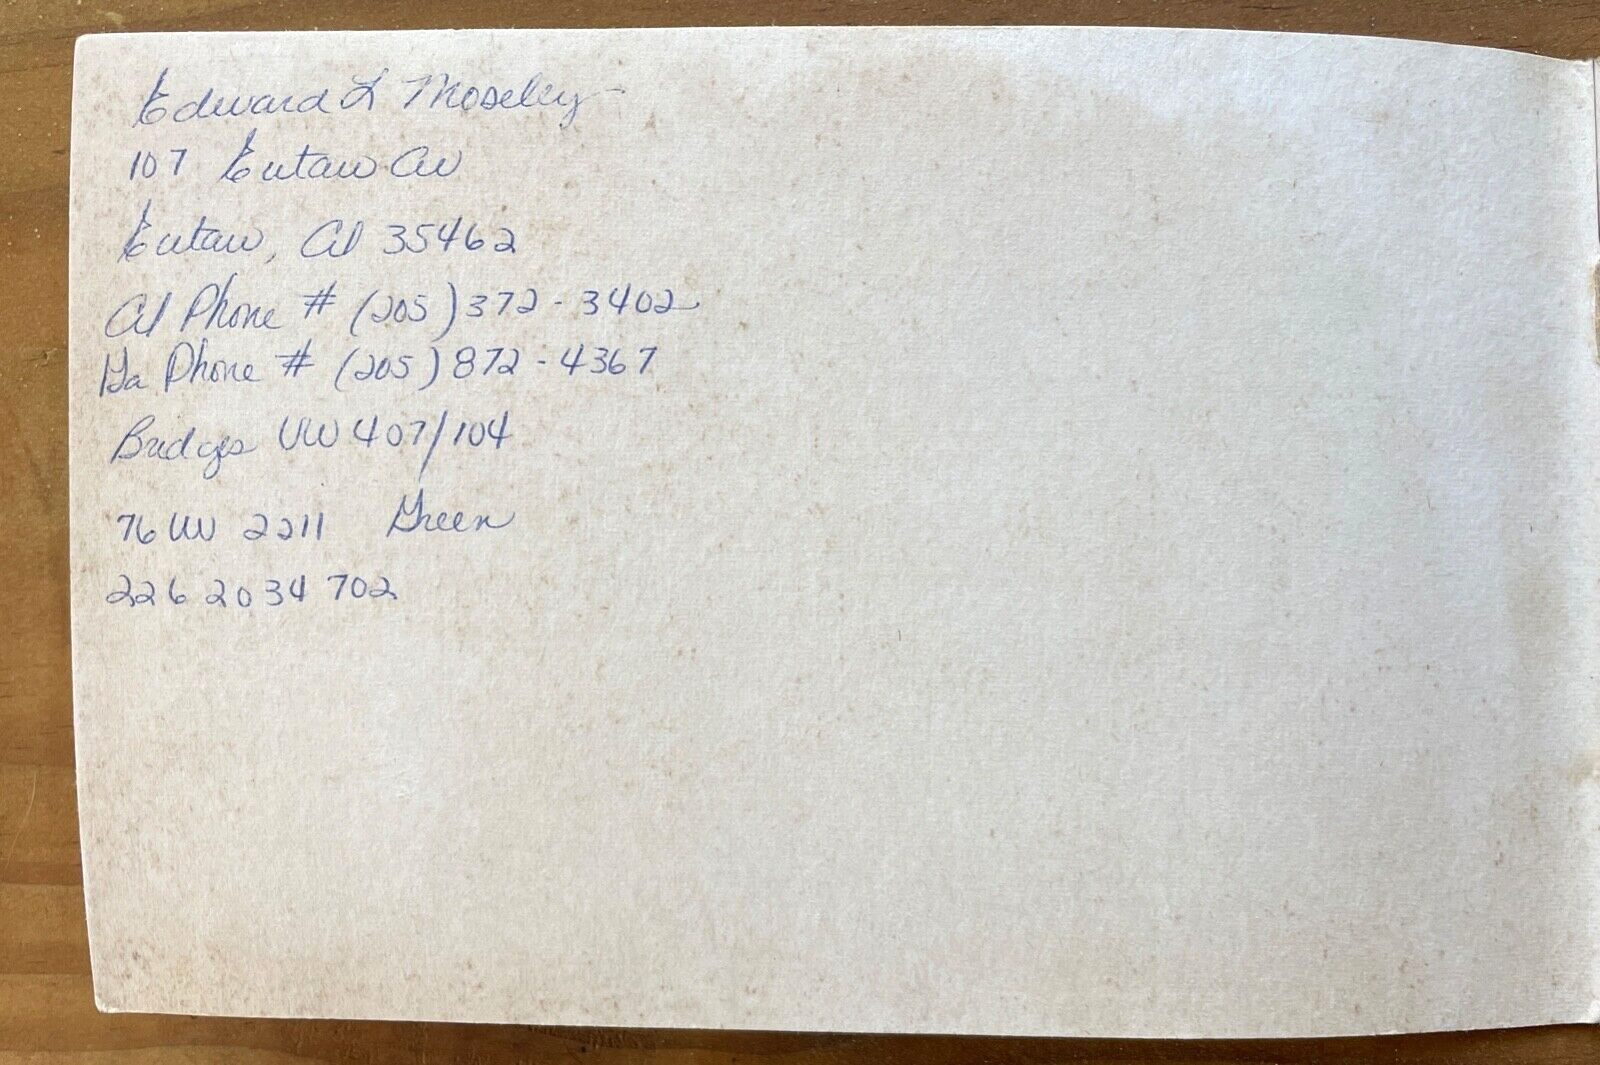 Edward L Moseley
107 Eutaw Av
Eutaw, Al 35462
Al Phone # (205) 372-3402
Ga Phone # (205) 872-4367
Bridges VW 407/104
76 VW 2211 Green
226 2034 702